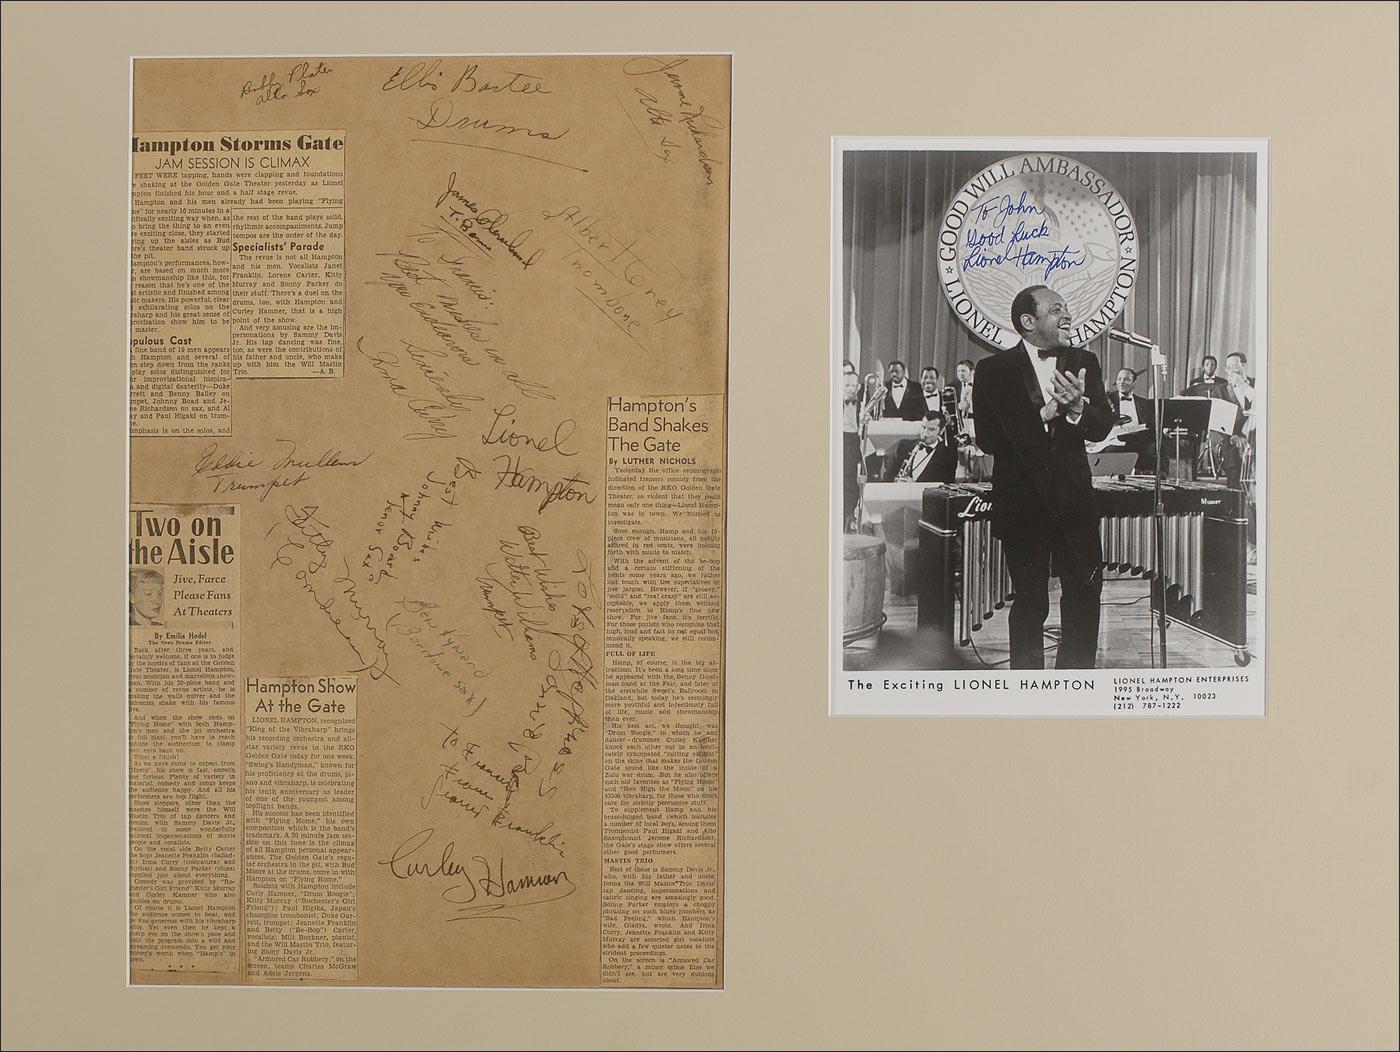 Bobby Plater
alto Sax
Ellis Bartee
Drums
Jerome Richardson
Alto Sax
Hampton Storms Gate
JAM SESSION IS CLIMAX
FEET WERE tapping, hands were clapping and foundations
shaking at the Golden Gate Theater yesterday as Lionel
finished his hour and a half stage revue.
Hampton and his men already had been playing "Flying
for nearly 10 minutes in a
exciting way when, as
bring the thing to an even
exciting close, they started
up the aisles as Bud
theater band struck up
the pit.
Hampton's performances, how-
are based on much more
showmanship like this, for
reason that he's one of the
artistic and finished among
makers. His powerful, clear
exhilarating solos on the
and his great sense of
show him to be
master.
Cast
fine band of 19 men appears
Hampton and several of
step down from the ranks
play solos distinguished for
improvisational inspira-
and digital dexterity—Duke
and Benny Bailey on
Johnny Board and Je-
Richardson on sax, and Al
and Paul Higaki on trom-
Emphasis is on the solos, and
the rest of the band plays solid,
rhythmic accompaniments. Jump
tempos are the order of the day.
Specialists' Parade
The revue is not all Hampton
and his men. Vocalists Janet
Franklin, Lorene Carter, Kitty
Murray and Sonny Parker do
their stuff. There's a duel on the
drums, too, with Hampton and
Curley Hamner, that is a high
point of the show.
And very amusing are the im-
personations by Sammy Davis
Jr. His tap dancing was fine,
too, as were the contributions of
his father and uncle, who make
up with him the Will Mastin
Trio. —A. B.
James Cleveland
T. Bone
Albert Grey
Trombone
To Francis:
Best wishes in all
your endeavors
Sincerely
Irma Curry
Lionel
Hampton
Eddie Mullens
Trumpet
Best wishes
Johnny Board
Tenor Sax
Kitty Murray
Best Wishes
Walter Williams
Trumpet
Ben Kynard
(Baritone sax)
to Francis
from
Jeanette Franklin
Curley Hamner
Two on
the Aisle
Jive, Farce
Please Fans
At Theaters
By Emilia Hodel
The News Drama Editor
Back after three years, and
certainly welcome, if one is to judge
by the hordes of fans at the Golden
Gate Theater, is Lionel Hampton,
great musician and marvelous show-
man. With his 20-piece band and
a number of revue artists, he is
making the walls quiver and the
balconies shake with his famous
jive.
And when the show ends on
"Flying Home" with both Hamp-
ton's men and the pit orchestra
at full blast, you'll have to reach
outside the auditorium to clamp
your ears back on.
What a finish!
As we have come to expect from
"Hamp", his show is fast, smooth
and furious. Plenty of variety in
material, comedy and songs keeps
the audience happy. And all his
performers are top flight.
Show stoppers, other than the
maestro himself were the Will
Mastin Trio of tap dancers and
comics, with Sammy Davis Jr.,
featured in some wonderfully
satirical impersonations of movie
people and vocalists.
On the vocal side Betty Carter
(be bop) Jeanette Franklin (ballad-
ist) Irma Curry (coloratura) and
rhythm) and Sonny Parker (blues)
supplied just about everything.
Comedy was provided by "Ro-
chester's Girl Friend" Kitty Murray
and Curley Kamner who also
doubles on drums.
Of course it is Lionel Hampton
the audience comes to hear, and
he was generous with his vibraharp
solos. Yet even then he kept a
sharp eye on the show's pace and
built the program into a wild and
screaming crescendo. You get your
money's worth when "Hamp's" in
town.
Hampton Show
At the Gate
LIONEL HAMPTON, recognized
"King of the Vibraharp" brings
his recording orchestra and all-
star variety revue to the RKO
Golden Gate today for one week.
"Swing's Handyman," known for
his proficiency at the drums, pi-
ano and vibraharp, is celebrating
his tenth anniversary as leader
of one of the youngest among
topflight bands.
His success has been identified
with "Flying Home," his own
composition which is the band's
trademark. A 20 minute jam ses-
sion on this tune is the climax
of all Hampton personal appear-
ances. The Golden Gate's regu-
lar orchestra in the pit, with Bud
Moore at the drums, come in with
Hampton on "Flying Home."
Soloists with Hampton include
Curly Hamner, "Drum Boogie";
Kitty Murray ("Rochester's Girl
Friend"); Paul Higika, Japan's
champion trombonist; Duke Gar-
rett, trumpet; Jeanette Franklin
and Betty ("Be-Bop") Carter,
vocalists; Milt Buckner, pianist,
and the Will Mastin Trio, featur-
ing Samy Davis Jr.
"Armored Car Robbery," on the
screen, teams Charles McGraw
and Adele Jergens.
Hampton's
Band Shakes
The Gate
By LUTHER NICHOLS
Yesterday the office seismograph
indicated tremors coming from the
direction of the RKO Golden Gate
Theater, so violent that they could
mean only one thing—Lionel Hamp-
ton was in town. We hurried to
investigate.
Sure enough, Hamp and his 19-
piece crew of musicians, all nattily
attired in red coats, were holding
forth with music to match.
With the advent of the be-bop
and a certain stiffening of the
joints some years ago, we rather
lost touch with the superlatives of
jive jargon. However, if "groovy,"
"solid" and "real crazy" are still ac-
ceptable, we apply them without
reservation to Hamp's fine new
show. For jive fans, it's terrific.
For those purists who recognize that
high, loud and fast do not equal hot,
musically speaking, we still recom-
mend it.
FULL OF LIFE
Hamp, of course, is the big at-
traction. It's been a long time since
he appeared with the Benny Good-
man band at the Fair, and later at
the erstwhile Sweet's Ballroom in
Oakland, but today he's seemingly
more youthful and infectiously full
of life, music and showmanship
than ever.
His best act, we thought, was
"Drum Boogie," in which he and
dancer-drummer Curley Kamner
knock each other out in an intri-
cately syncopated "suiting contest"
on the skins that makes the Golden
Gate sound like the inside of a
Zulu war drum. But he also offers
such old favorites as "Flying Home"
and "How High the Moon" on his
$3500 vibraharp, for those who don't
care for strictly percussive stuff.
To supplement Hamp and his
brass-lunged band (which includes
a number of local boys, among them
Trombonist Paul Higaki and Alto
Saxophonist Jerome Richardson),
the Gate's stage show offers several
other good performers.
MASTIN TRIO
Best of these is Sammy Davis Jr.,
who, with his father and uncle,
forms the Will Mastin Trio. Davis'
tap dancing, impersonations and
satiric singing are amazingly good.
Sonny Parker employs a choppy
phrasing on such blues numbers as
"Bad Feeling," which Hampton's
wife, Gladys, wrote. And Irma
Curry, Jeanette Franklin and Kitty
Murray are assorted girl vocalists
who add a few quieter notes to the
strident proceedings.
On the screen is "Armored Car
Robbery," a minor crime film we
didn't see, but are very dubious
about.
GOOD WILL AMBASSADOR
LIONEL HAMPTON
To John
Good Luck
Lionel Hampton
Lion
Musser
The Exciting LIONEL HAMPTON
LIONEL HAMPTON ENTERPRISES
1995 Broadway
New York, N.Y. 10023
(212) 787-1222